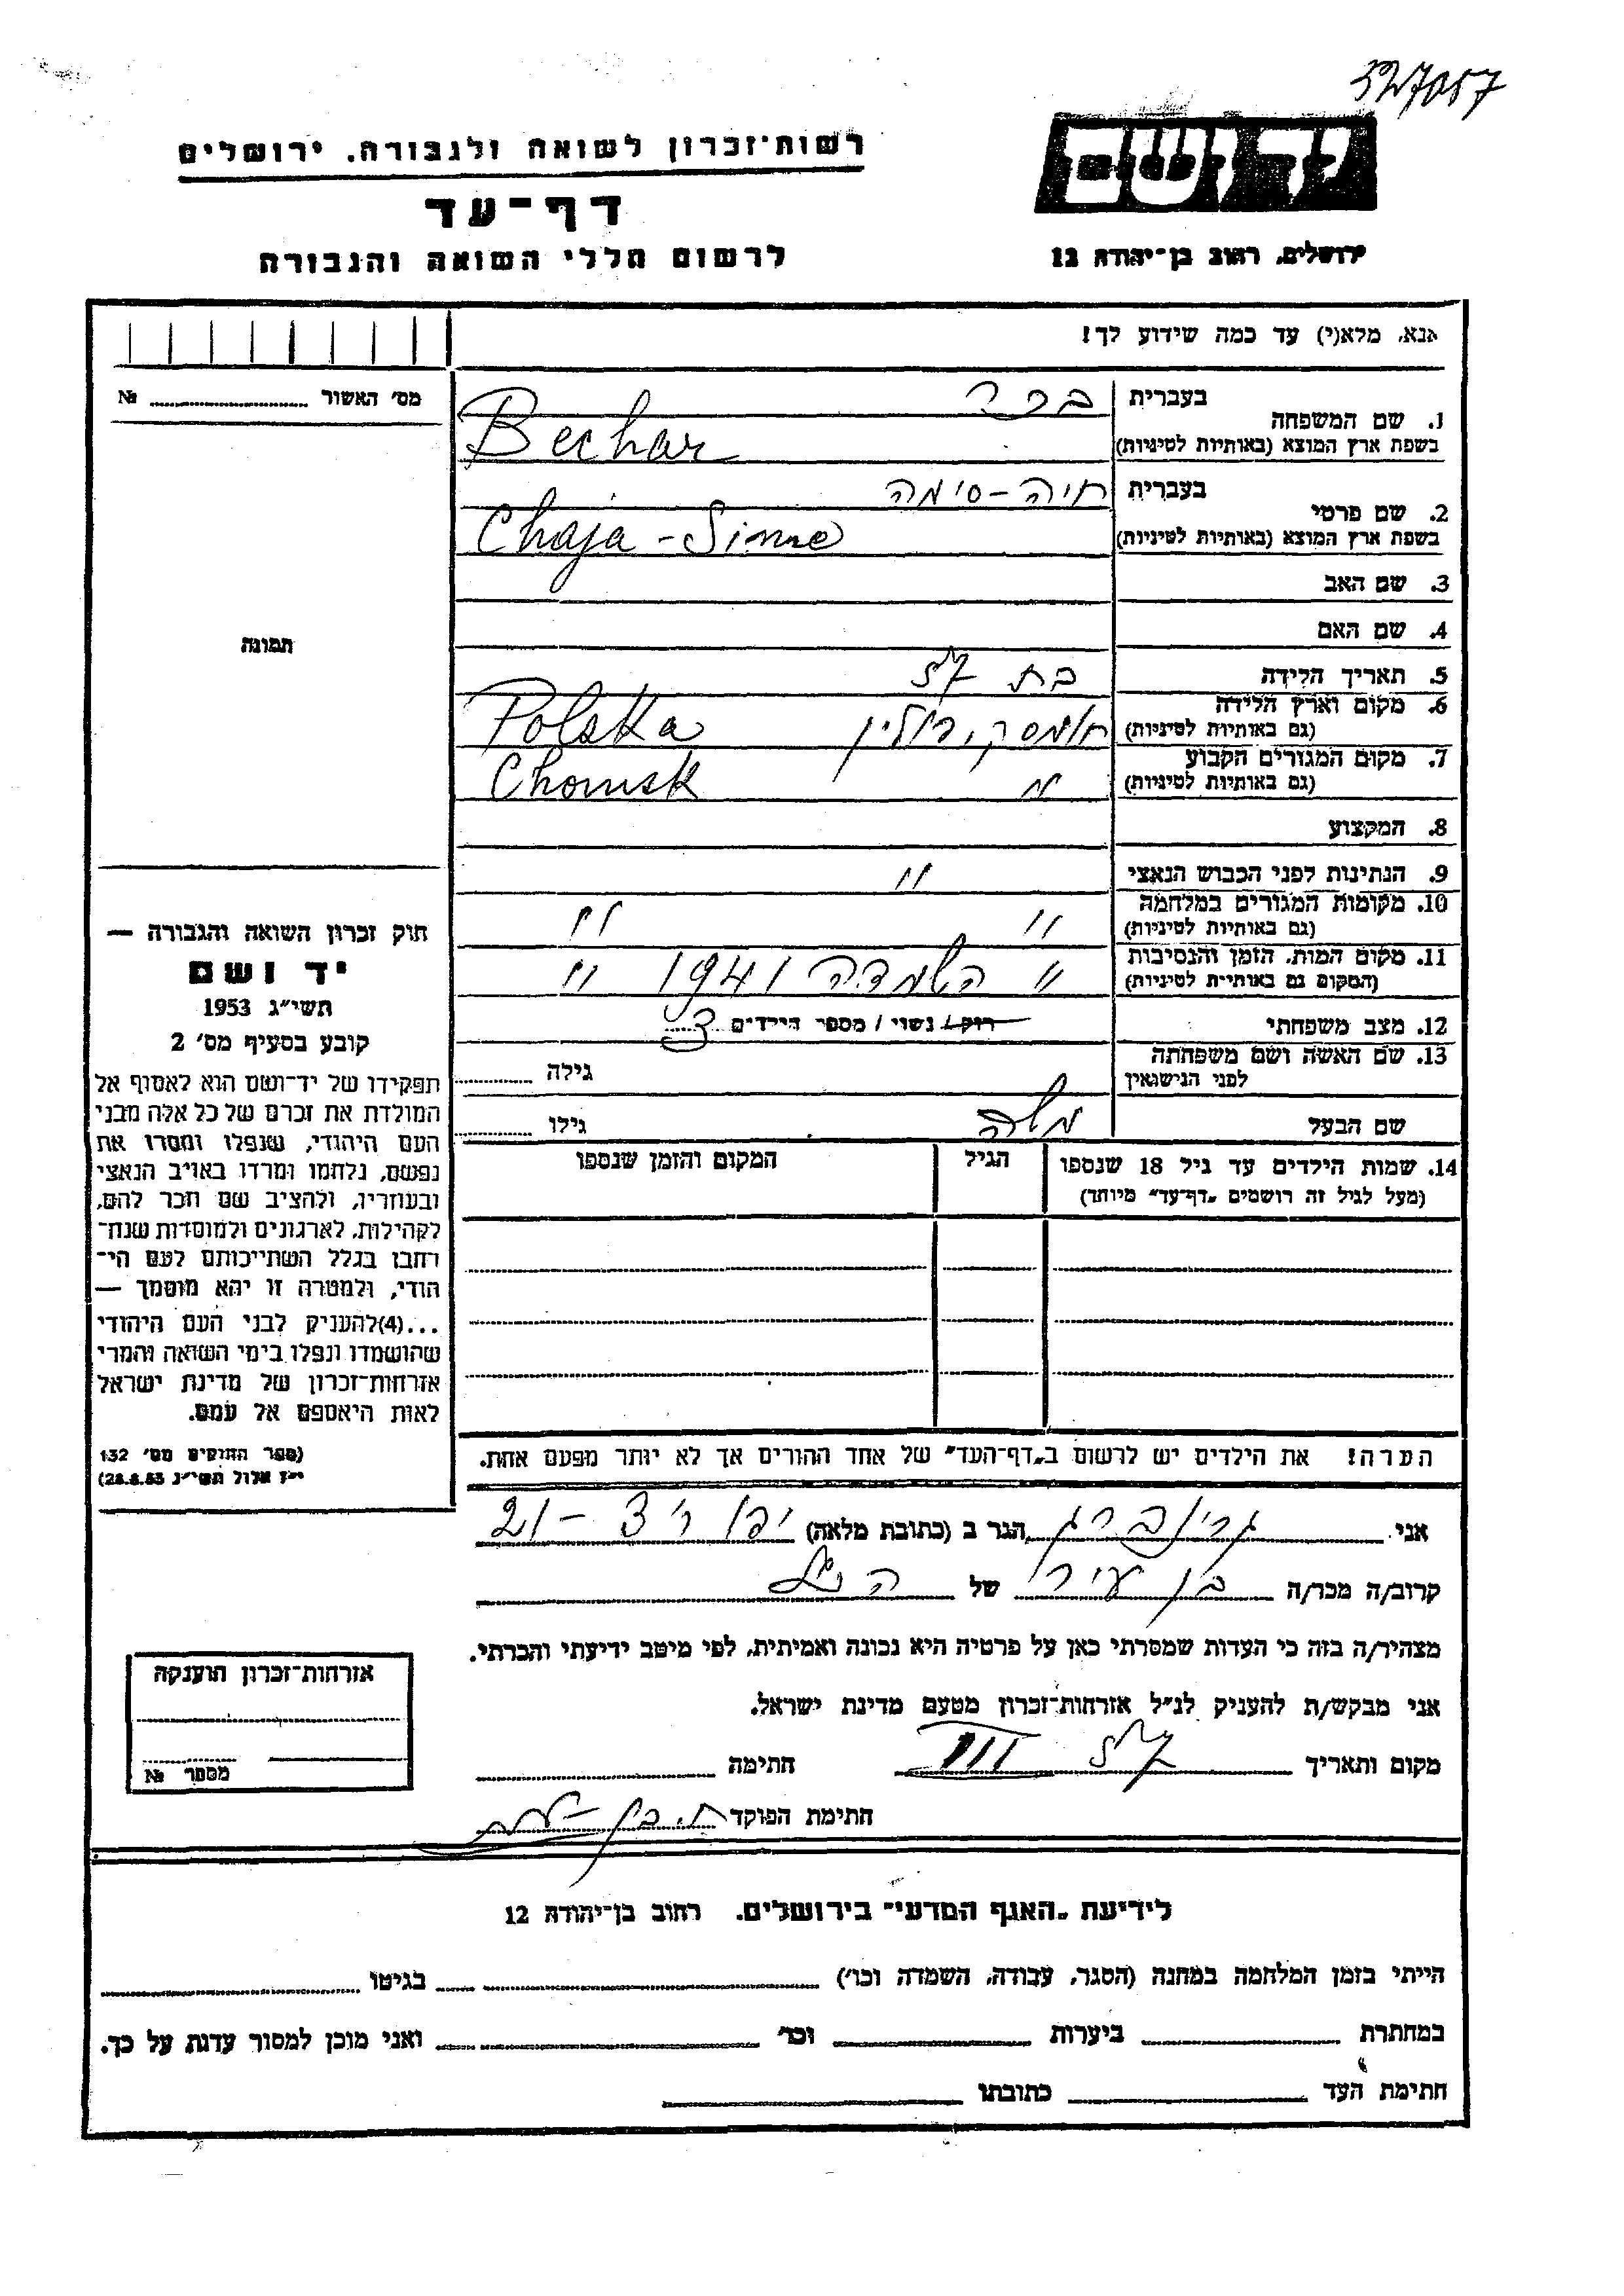 327057
רשות-זכרון לשואה ולגבורה, ירושלים
יד ושם
דף-עד
לרשום חללי השואה והגבורה
ירושלים, רחוב בן-יהודה 12
אנא, מלא(י) עד כמה שידוע לך!
מס' האשור № 
1. שם המשפחה
בעברית בכר
בשפת ארץ המוצא (באותיות לטיניות) Bechar
2. שם פרטי
בעברית חיה-סימה
בשפת ארץ המוצא (באותיות לטיניות) Chaja-Sime
3. שם האב
4. שם האם
תמונה
5. תאריך הלידה בת
6. מקום וארץ הלידה
(גם באותיות לטיניות) חומסק, פולין Polska
7. מקום המגורים הקבוע
(גם באותיות לטיניות) " Chomsk
8. המקצוע
9. הנתינות לפני הכבוש הנאצי "
10. מקומות המגורים במלחמה
(גם באותיות לטיניות) " "
11. מקום המות, הזמן והנסיבות
(המקום גם באותיות לטיניות) " השמדה 1941 "
12. מצב משפחתי רוק / נשוי / מספר הילדים 3
13. שם האשה ושם משפחתה
לפני הנישואין גילה
שם הבעל משה גילו
14. שמות הילדים עד גיל 18 שנספו
(מעל לגיל זה רושמים "דף-עד" מיוחד)
הגיל
המקום והזמן שנספו
חוק זכרון השואה והגבורה —
יד ושם
תשי"ג 1953
קובע בסעיף מס' 2
תפקידו של יד-ושם הוא לאסוף אל
המולדת את זכרם של כל אלה מבני
העם היהודי, שנפלו ומסרו את
נפשם, נלחמו ומרדו באויב הנאצי
ובעוזריו, ולהציב שם וזכר להם,
לקהילות, לארגונים ולמוסדות שנח-
רבו בגלל השתייכותם לעם הי-
הודי, ולמטרה זו יהא מוסמך —
...(4) להעניק לבני העם היהודי
שהושמדו ונפלו בימי השואה והמרי
אזרחות-זכרון של מדינת ישראל
לאות היאספם אל עמם.
(ספר החוקים מס' 132
י"ז אלול תשי"ג 28.8.53)
הערה! את הילדים יש לרשום ב"דף-העד" של אחד ההורים אך לא יותר מפעם אחת.
אני גרינברג הגר ב (כתובת מלאה) יפו 21 -
קרוב/ה מכר/ה בן עיר של הנ"ל
מצהיר/ה בזה כי העדות שמסרתי כאן על פרטיה היא נכונה ואמיתית, לפי מיטב ידיעתי והכרתי.
אני מבקש/ת להעניק לנ"ל אזרחות-זכרון מטעם מדינת ישראל.
מקום ותאריך III חתימה
חתימת הפוקד
אזרחות-זכרון הוענקה
מספר №
לידיעת "האגף המדעי" בירושלים, רחוב בן-יהודה 12
הייתי בזמן המלחמה במחנה (הסגר, עבודה, השמדה וכו') בגיטו
במחתרת ביערות וכו' ואני מוכן למסור עדות על כך.
חתימת העד כתובתו